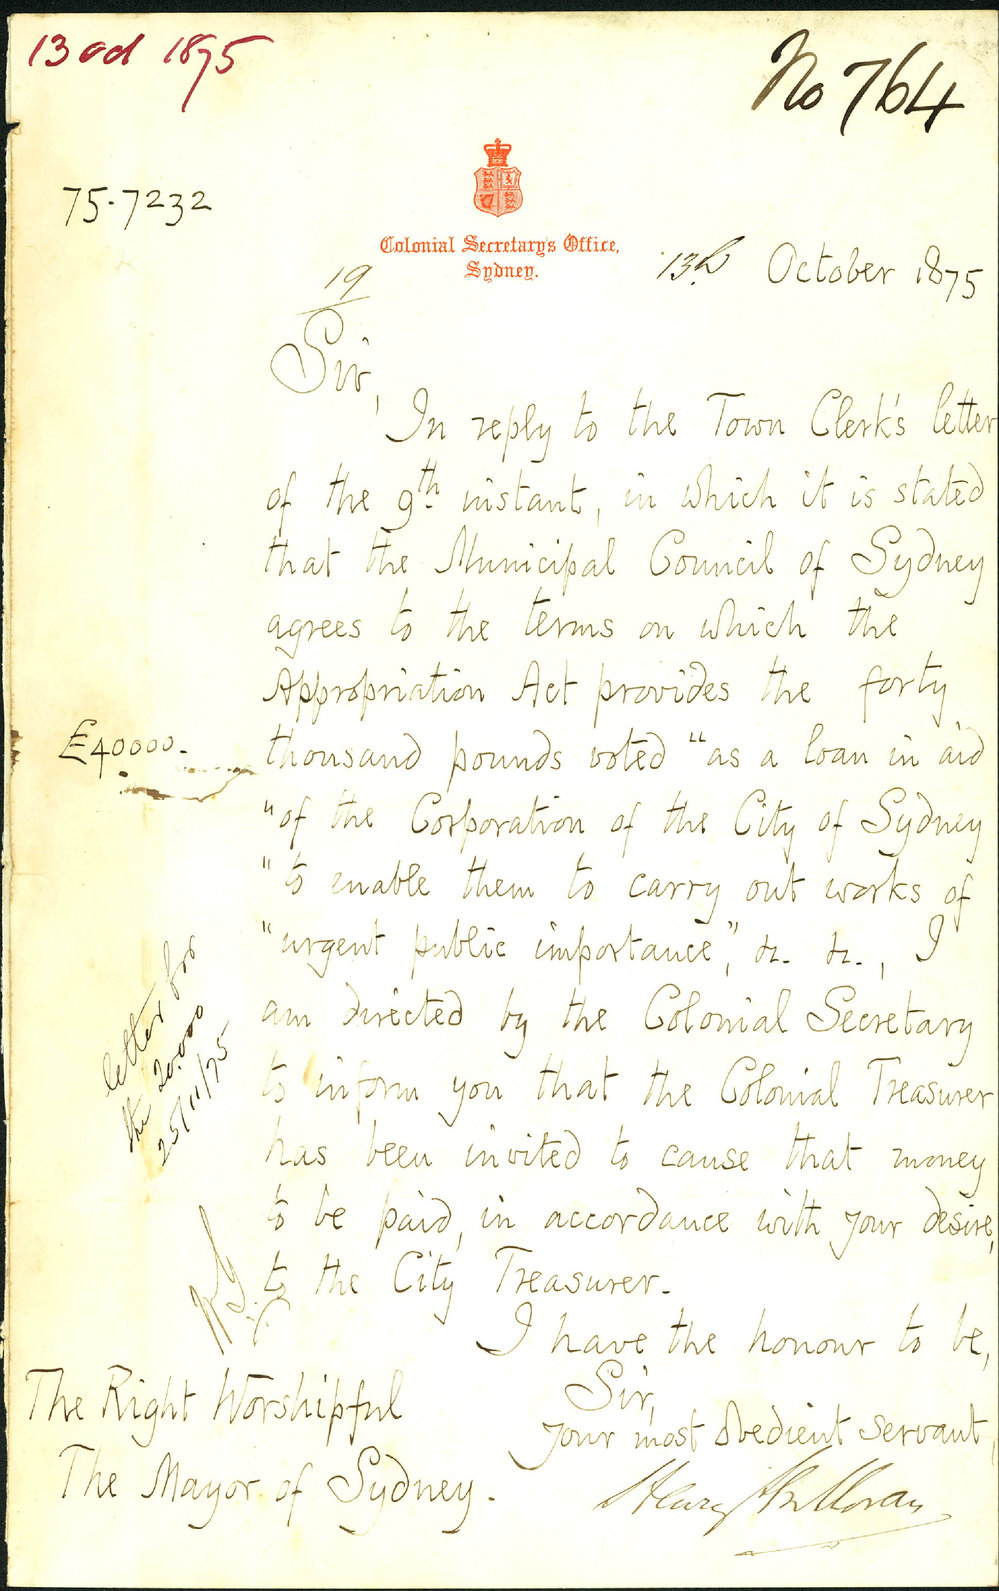 13 Oct 1875
No 764
75.7232
Colonial Secretary's Office,
Sydney.
13th October 1875
19
Sir,
In reply to the Town Clerk's letter
of the 9th instant, in which it is stated
that the Municipal Council of Sydney
agrees to the terms on which the
Appropriation Act provides the forty
£40000.
thousand pounds voted "as a loan in aid
"of the Corporation of the City of Sydney
"to enable them to carry out works of
"urgent public importance", &c. &c., I
am directed by the Colonial Secretary
to inform you that the Colonial Treasurer
has been invited to cause that money
to be paid, in accordance with your desire,
to the City Treasurer.
letter for
the 20.000
25/11/75
I have the honour to be,
Sir,
Your most obedient servant,
Henry Halloran
The Right Worshipful
The Mayor of Sydney.